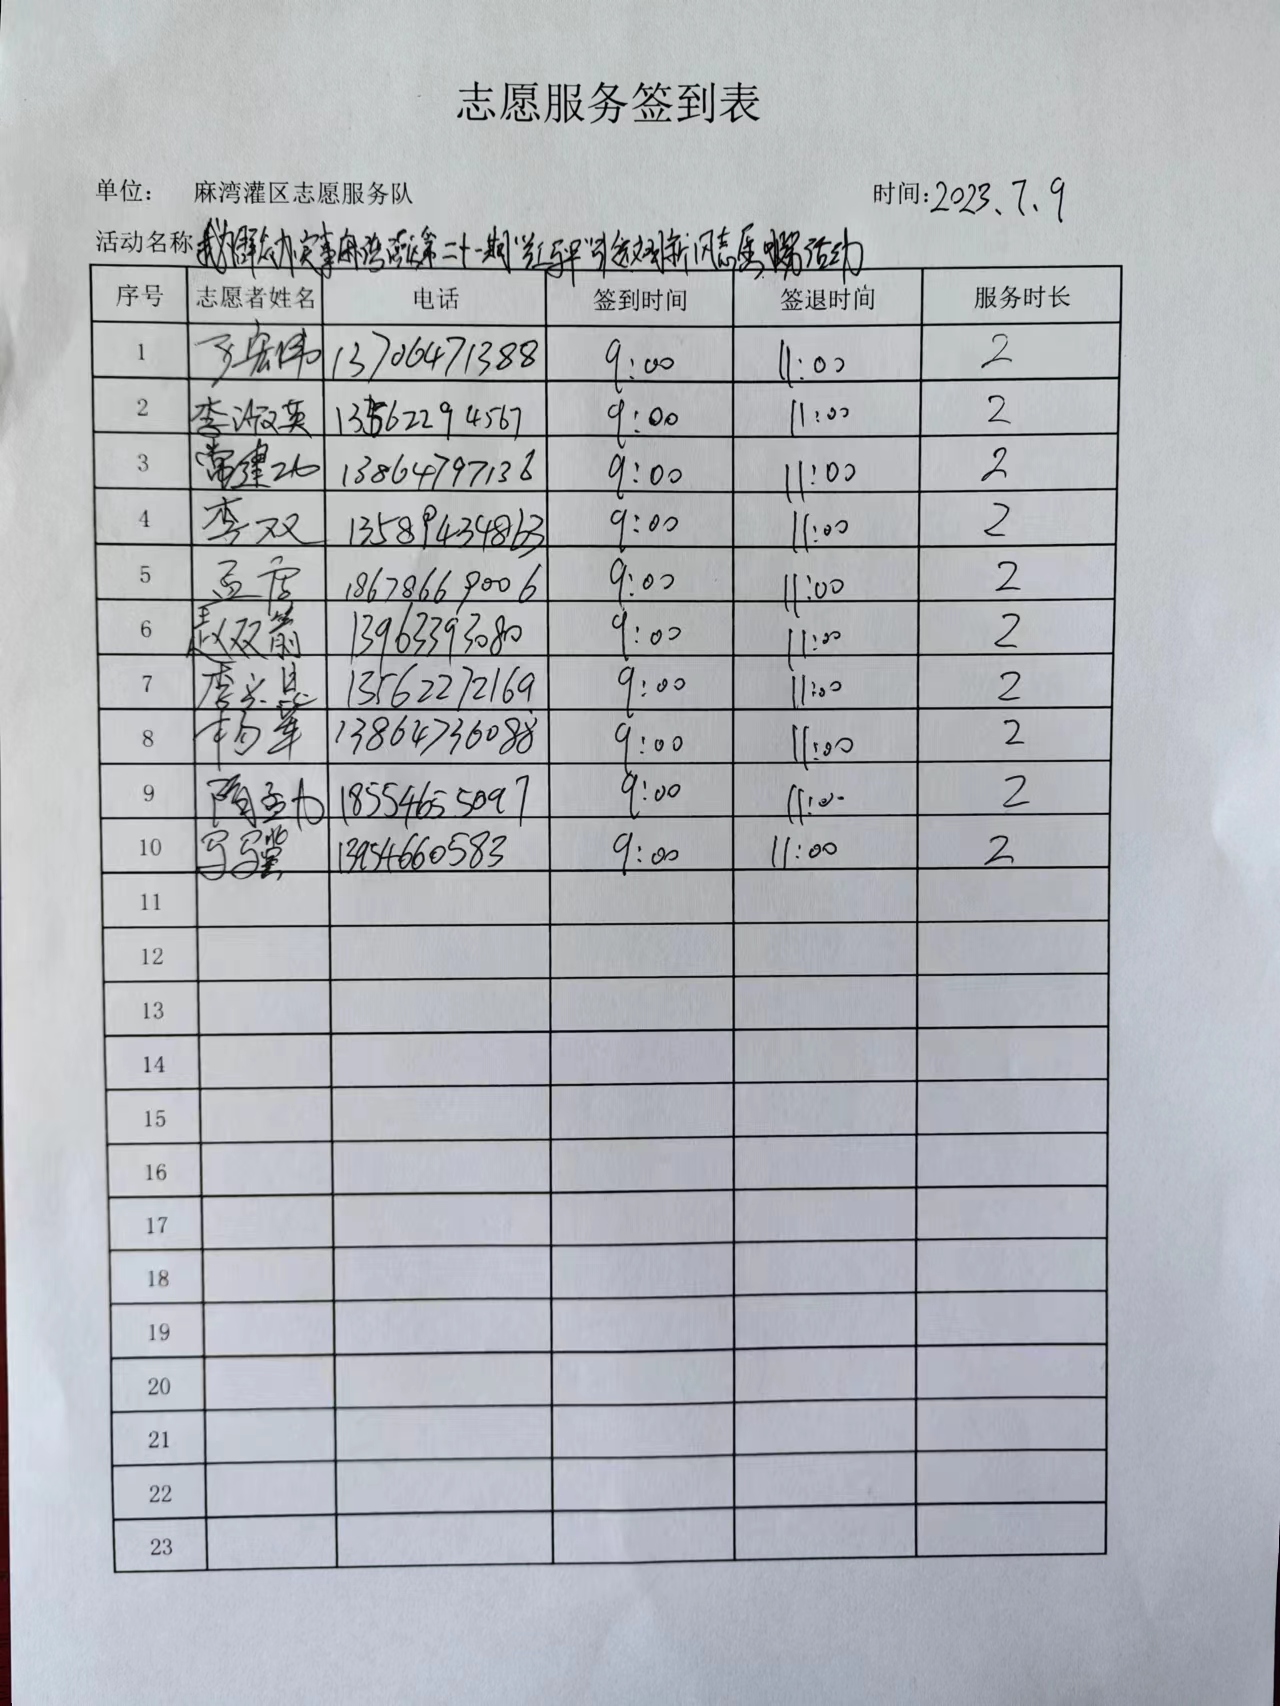 志愿服务签到表
单位： 麻湾灌区志愿服务队 时间:2023.7.9
活动名称 我为群众办实事麻湾灌区第二十一期"红马甲"引进文明新风志愿服务活动
序号 志愿者姓名 电话 签到时间 签退时间 服务时长
1 宏伟 13706471388 9:00 11:00 2
2 李淑英 13562294567 9:00 11:00 2
3 常建 13864797136 9:00 11:00 2
4 李双 13589434863 9:00 11:00 2
5 孟 18678669006 9:00 11:00 2
6 赵双箭 13963393080 9:00 11:00 2
7 李 13562272169 9:00 11:00 2
8 杨军 13864736088 9:00 11:00 2
9 隋孟力 18554655097 9:00 11:00 2
10 马骥 13954660583 9:00 11:00 2
11
12
13
14
15
16
17
18
19
20
21
22
23